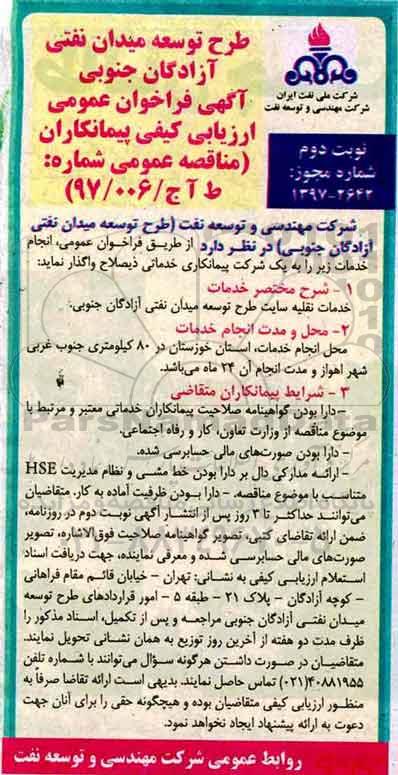 شرکت ملی نفت ایران
شرکت مهندسی و توسعه نفت
طرح توسعه میدان نفتی
آزادگان جنوبی
آگهی فراخوان عمومی
ارزیابی کیفی پیمانکاران
(مناقصه عمومی شماره:
ط آ ج/۹۷/۰۰۶)
نوبت دوم
شماره مجوز:
۱۳۹۷-۲۶۴۲
شرکت مهندسی و توسعه نفت (طرح توسعه میدان نفتی
آزادگان جنوبی) در نظر دارد از طریق فراخوان عمومی، انجام
خدمات زیر را به یک شرکت پیمانکاری خدماتی ذیصلاح واگذار نماید:
۱- شرح مختصر خدمات
خدمات نقلیه سایت طرح توسعه میدان نفتی آزادگان جنوبی.
۲- محل و مدت انجام خدمات
محل انجام خدمات، استان خوزستان در ۸۰ کیلومتری جنوب غربی
شهر اهواز و مدت انجام آن ۲۴ ماه می‌باشد.
۳ - شرایط پیمانکاران متقاضی
-دارا بودن گواهینامه صلاحیت پیمانکاران خدماتی معتبر و مرتبط با
موضوع مناقصه از وزارت تعاون، کار و رفاه اجتماعی.
- دارا بودن صورت‌های مالی حسابرسی شده.
- ارائه مدارکی دال بر دارا بودن خط مشی و نظام مدیریت HSE
متناسب با موضوع مناقصه. - دارا بودن ظرفیت آماده به کار. متقاضیان
می‌توانند حداکثر تا ۳ روز پس از انتشار آگهی نوبت دوم در روزنامه،
ضمن ارائه تقاضای کتبی، تصویر گواهینامه صلاحیت فوق‌الاشاره، تصویر
صورت‌های مالی حسابرسی شده و معرفی نماینده، جهت دریافت اسناد
استعلام ارزیابی کیفی به نشانی: تهران - خیابان قائم مقام فراهانی
- کوچه آزادگان - پلاک ۲۱ - طبقه ۵ - امور قراردادهای طرح توسعه
میدان نفتی آزادگان جنوبی مراجعه و پس از تکمیل، اسناد مذکور را
ظرف مدت دو هفته از آخرین روز توزیع به همان نشانی تحویل نمایند.
متقاضیان در صورت داشتن هرگونه سؤال می‌توانند با شماره تلفن
۴۰۸۸۱۹۵۵(۰۲۱) تماس حاصل نمایند. بدیهی است ارائه تقاضا صرفاً به
منظور ارزیابی کیفی متقاضیان بوده و هیچگونه حقی را برای آنان جهت
دعوت به ارائه پیشنهاد ایجاد نخواهد نمود.
روابط عمومی شرکت مهندسی و توسعه نفت